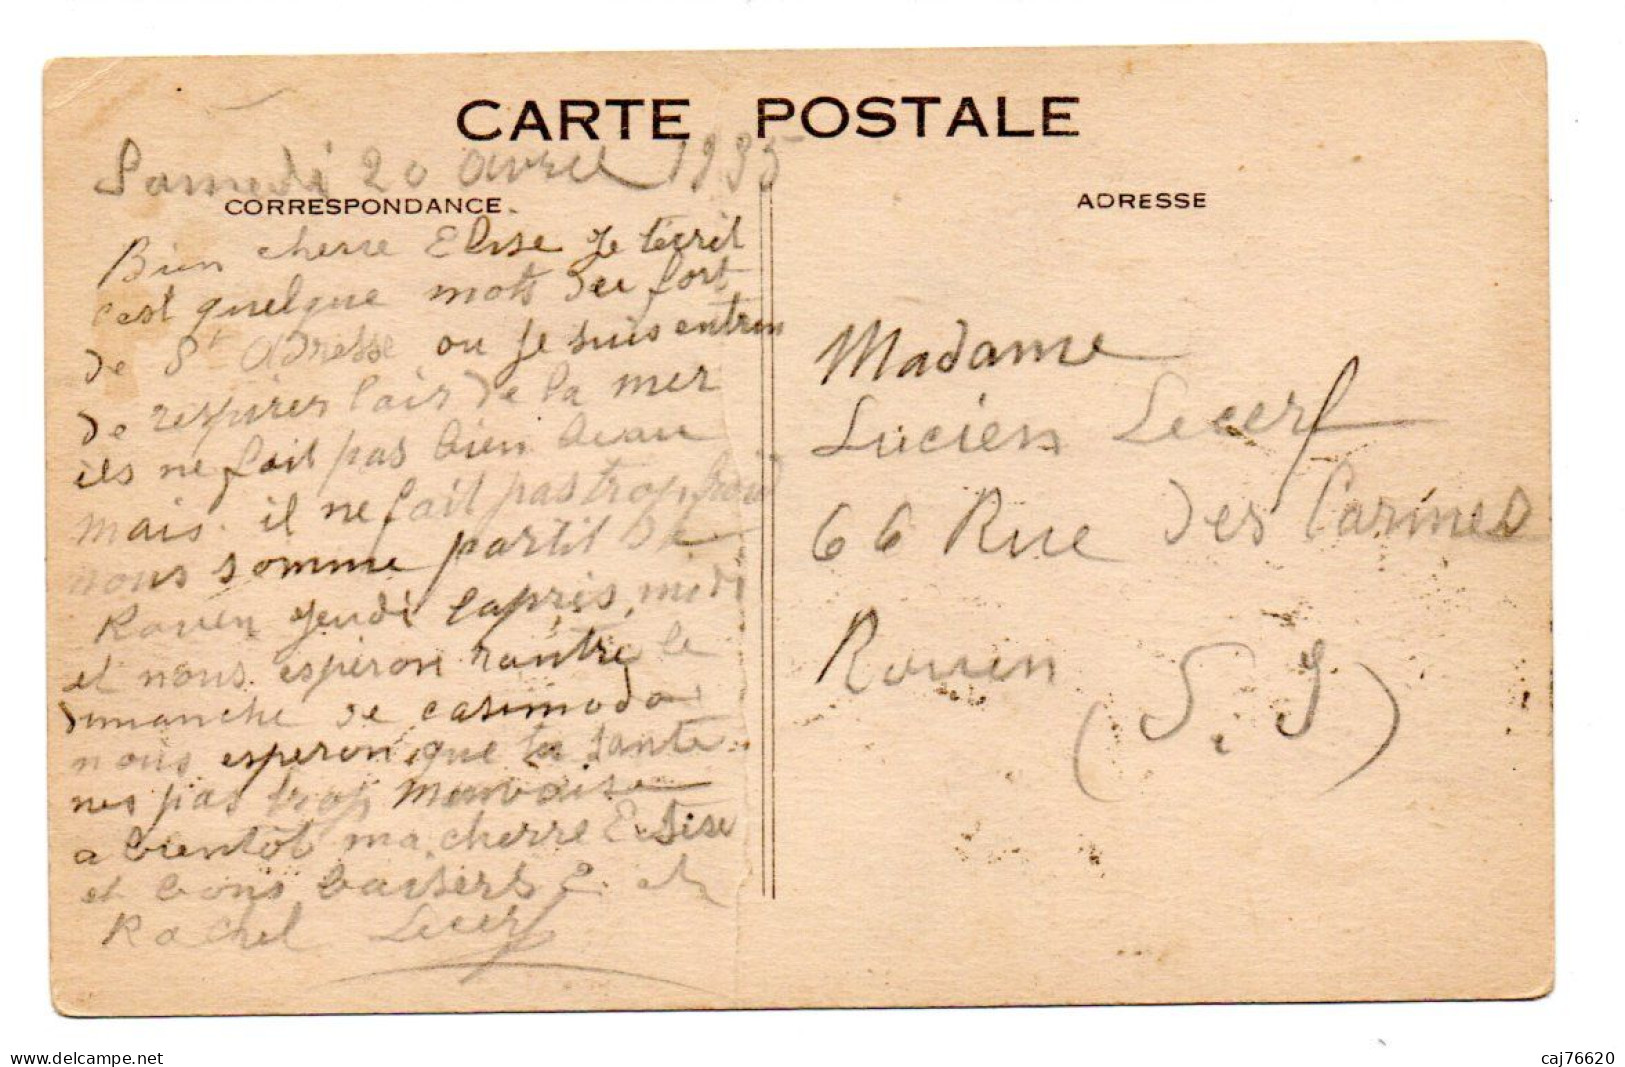 CARTE POSTALE
Samedi 20 avril 1935
CORRESPONDANCE
Bien cherre Elise Je t'écrit
cest quelque mots deu fort
de St Adresse ou je suis entrin
de respirer lair de la mer
ils ne fait pas bien beau
mais il ne fait pas trop froid
nous somme partit de
Rouen jeudi l'après midi
et nous esperon rantre le
dimanche de casimodo
nous esperon que ta sante
nes pas trop menvaise
a bientôt ma cherre Elise
et bons baisers
Rachel Lecerf
ADRESSE
Madame
Lucien Lecerf
66 Rue des Carmes
Rouen
(S. I)
delcampe.net
caj76620